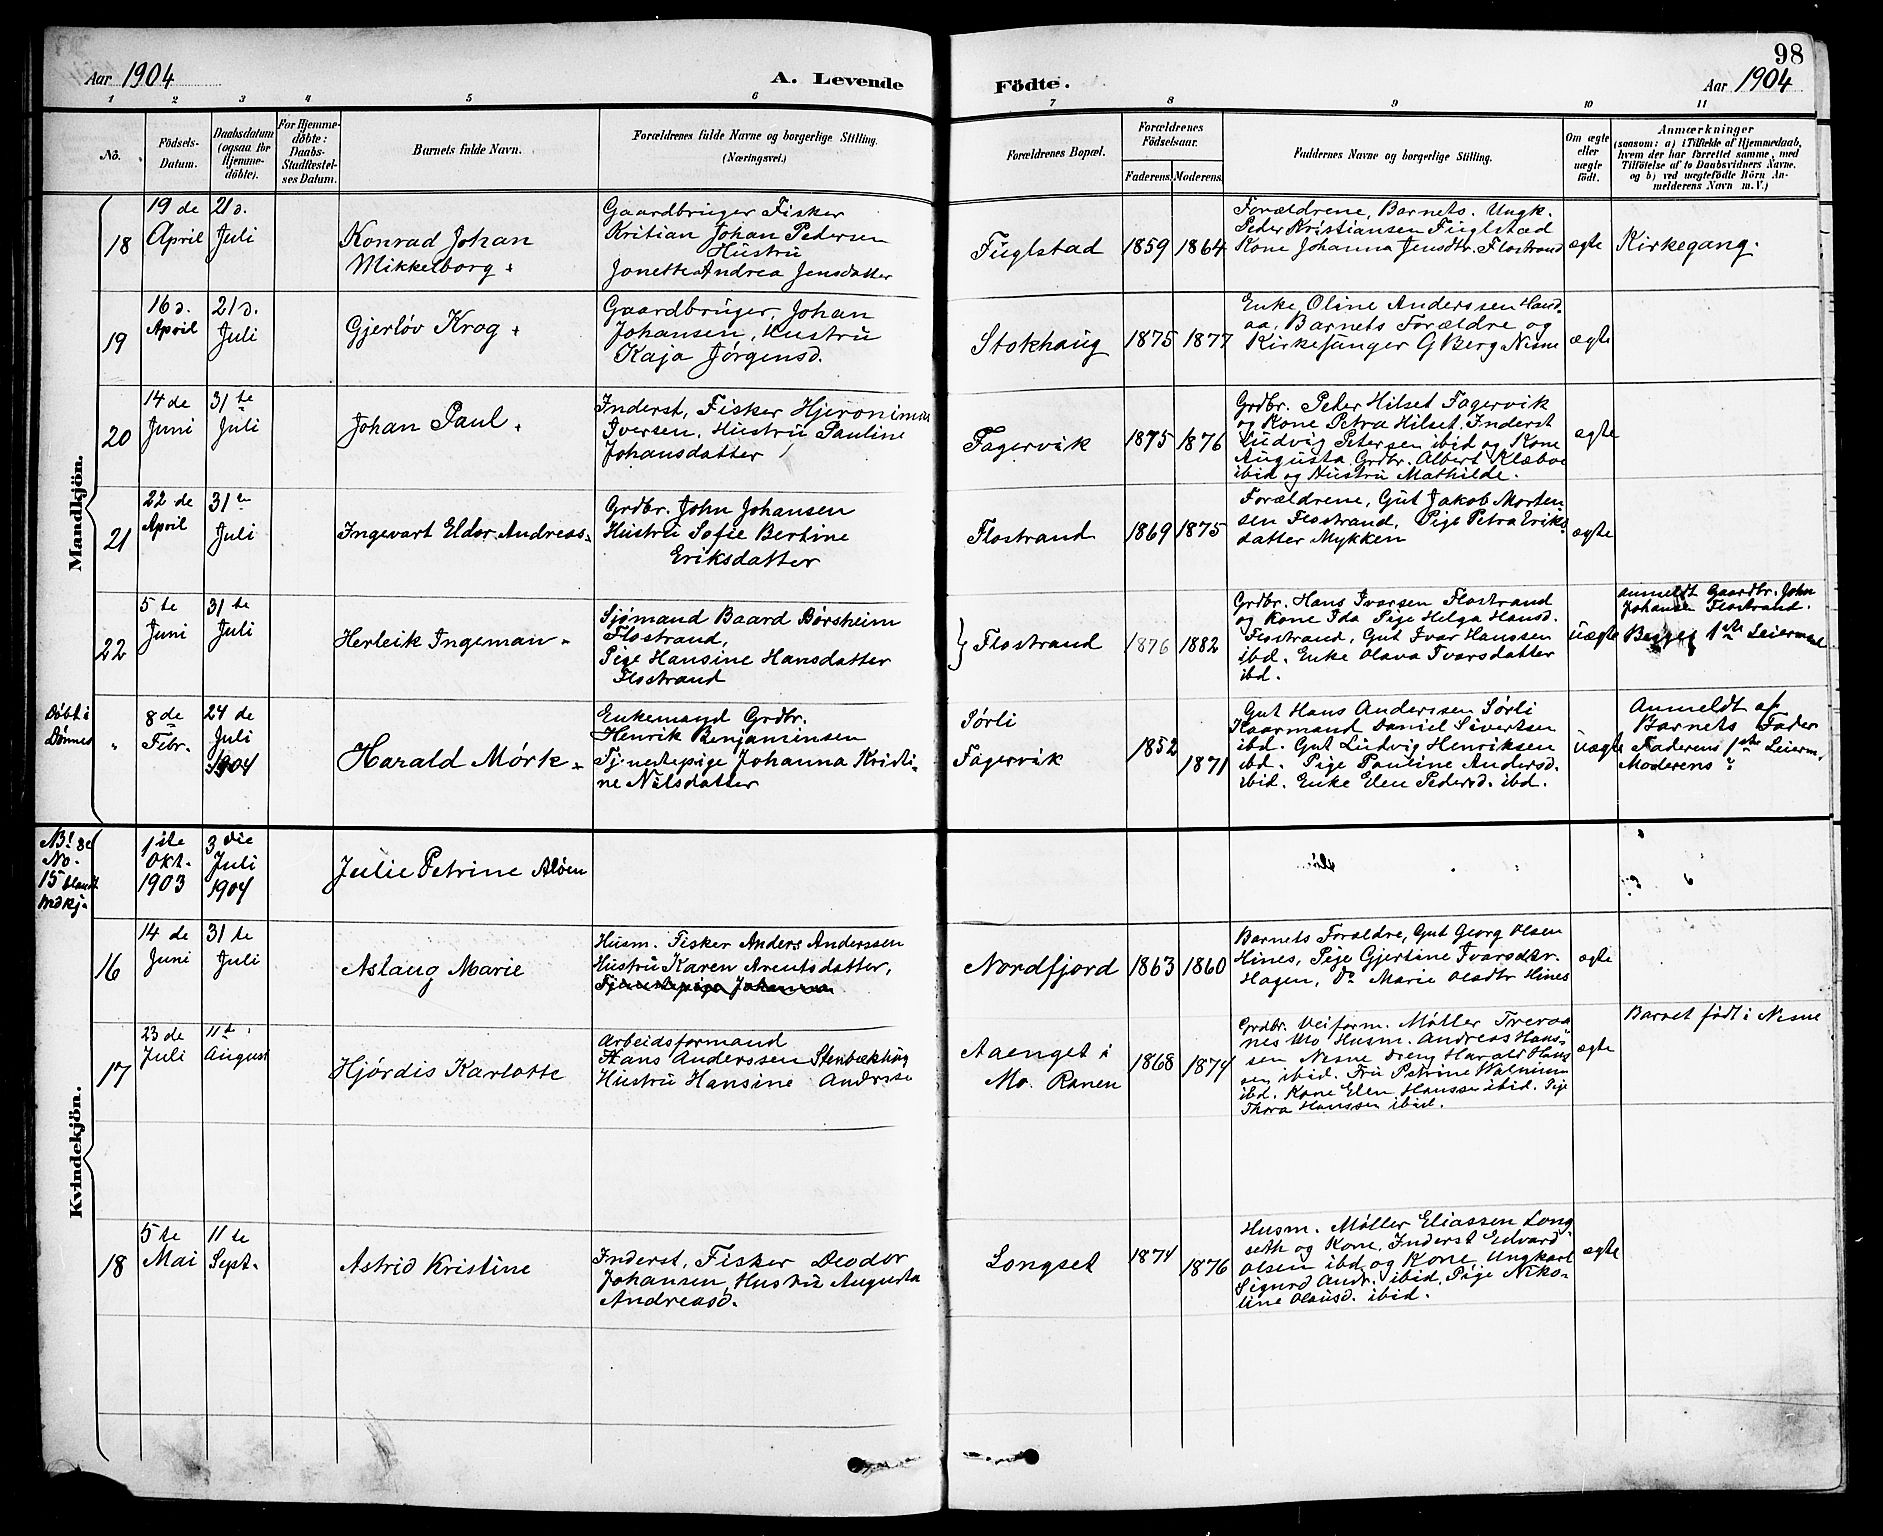 98
Aar 1904
A. Levende
Födte.
Aar 1904
1 2 3 4 5 6 7 8 9 10 11
No.
Födsels-
Datum.
Daabsdatum
(ogsaa for
Hjemme-
döbte).
For Hjemme-
döbte:
Daabs-
Stadfæstel-
ses Datum.
Barnets fulde Navn.
Forældrenes fulde Navne og borgerlige Stilling.
(Næringsvei.)
Forældrenes Bopæl.
Forældrenes
Födselsaar.
Faderens. Moderens.
Faddernes Navne og borgerlige Stilling.
Om ægte
eller
uægte
født.
Anmærkninger
(saasom: a) i Tilfælde af Hjemmedaab,
hvem der har forrettet samme, med
Tilföielse af to Daabsvidners Navne.
og b) ved uægtefödte Börn An-
melderens Navn m. V.)
Mandkjön.
18
19 de
April
21 d.
Juli
Konrad Johan
Mikkelborg
Gaardbruger Fisker
Kritian Johan Pedersen
Hustru
Jonette Andrea Jensdatter
Fuglstad
1859
1864
Forældrene, Barnets. Ungk.
Peder Kristiansen Fuglstad
Kone Johanna Jensdtr. Flostrand
ægte
Kirkegang.
19
16 d.
April
21 d.
Juli
Gjerløv Krog
Gaardbruger, Johan
Johansen, Hustru
Kaja Jørgensd.
Stokhaug
1875
1877
Enke Oline Anderssen Hand-
aa, Barnets Forældre og
Kirkesanger G Berg Nesne
ægte
20
14 de
Juni
31 te
Juli
Johan Paul
Inderst, Fisker Hjeronimus
Iversen, Hustru Pauline
Johansdatter
Fagervik
1875
1876
Grdbr. Peder Hilset Fagervik
og Kone Petra Hilset. Inderst
Ludvig Petersen ibid og Kone
Augusta Grdbr. Albert Klæboe
ibid og Hustru Mathilde.
ægte
21
22 de
April
31 te
Juli
Ingevart Eldor Andreas
Grdbr. John Johansen
Hustru Sofie Bertine
Eriksdatter
Flostrand
1869
1875
Forældrene, Gut Jakob Morten-
sen Flostrand, Pige Petra Eriks
datter Mykken
ægte
22
5 te
Juni
31 te
Juli
Herleik Ingeman
Sjømand Baard Børsheim
Flostrand,
Pige Hansine Hansdatter
Flostrand
Flostrand
1876
1882
Grdbr. Hans Ivarsen Flostrand
og Kone Ida Pige Helga Hansd.
Flostrand, Gut Ivar Hanssen
ibd. Enke Olava Ivarsdatter
ibd.
uægte
anmeldt Gaardbr. John
Johansen Flostrand.
Begges 1ste Leiermaal
Døbt i
Dønnes
"
8 de
Febr.
24 de
Juli
1904
Harald Mørk
Enkemand Grdbr.
Henrik Benjaminsen
Tjenestepige Johanna Kristi-
ne Nilsdatter
Sørli
Fagervik
1852
1871
Gut Hans Anderssen Sørli
Kaarmand Daniel Sivertsen
ibd. Gut Ludvig Henriksen
ibd. Pige Pauline Andersd.
ibid. Enke Elen Pedersd. ibd.
uægte
Anmeldt af
Barnets Fader
Faderens 1ste Leierm.
Moderens "
Kvindekjön.
N.B. se
No.
15 blandt
Mdkj.
1 ste
Okt.
1903
3 die
Juli
1904
Julie Petrine Aløen
16
14 de
Juni
31 te
Juli
Aslaug Marie
Husm. Fisker Anders Anderssen
Hustru Karen Arentsdatter,
Tjenestepige Johanna
Nordfjord
1863
1860
Barnets Forældre, Gut Georg Olsen
Hines, Pige Gjertine Ivarsdtr.
Hagen, Do Marie Olsdtr Hines
ægte
17
23 de
Juli
11 te
August
Hjørdis Karlotte
Arbeidsformand
Hans Anderssen Stenbækhaug
Hustru Hansine Anderse
Aaenget i
Mo. Ranen
1868
1874
Grdbr. Veiform. Møller Trevaa
nes Mo Husm. Andreas Hans-
sen Nesne Dreng Harald Hans
sen ibid. Fru Petrine Walnum
ibd. Kone Elen Hanssen ibid. Pige
Thora Hanssen ibid.
ægte
Barnet født i Nesne
18
5 te
Mai
11 te
Sept.
Astrid Kristine
Inderst, Fisker Deodor
Johansen, Hustru Augusta
Andreasd.
Longset
1874
1876
Husm. Møller Eliassen Long
seth og Kone, Inderst Edvard
Olsen ibd og Kone, Ungkarl
Sigurd Andr. ibid, Pige Niko-
line Olausd. ibid.
ægte